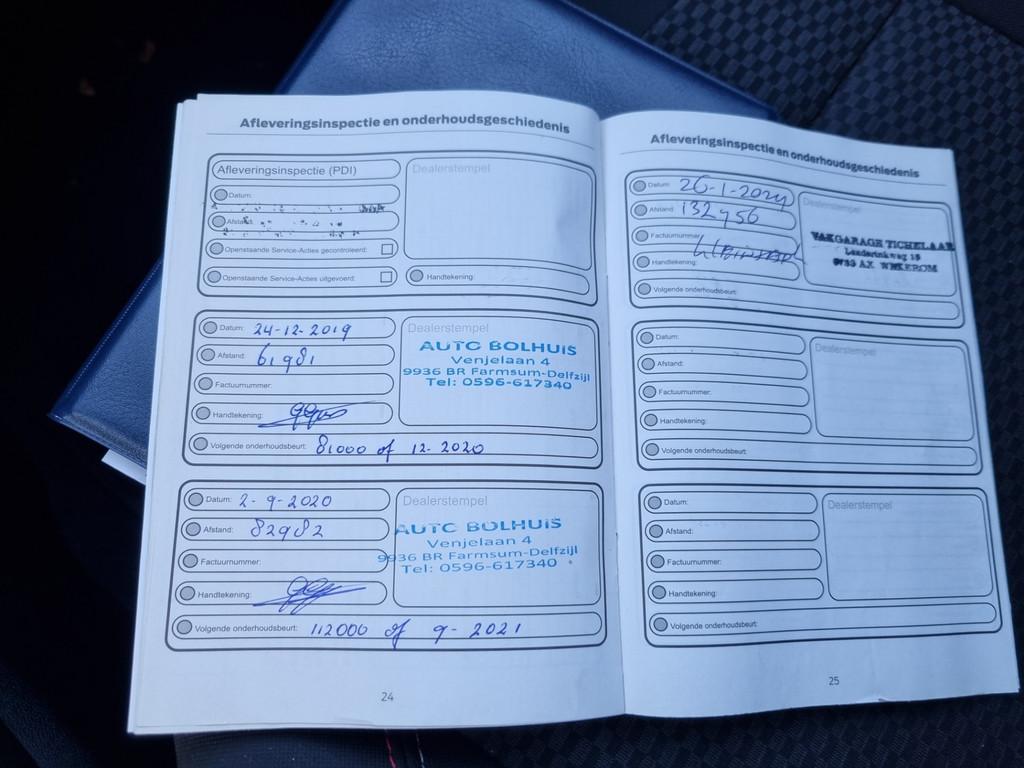 Afleveringsinspectie en onderhoudsgeschiedenis
Afleveringsinspectie (PDI)
Datum:
Afstand:
Openstaande Service-Acties gecontroleerd:
Openstaande Service-Acties uitgevoerd:
Dealerstempel
Handtekening:
Datum: 24-12-2019
Afstand: 61981
Factuurnummer:
Handtekening:
Volgende onderhoudsbeurt: 81000 of 12-2020
Dealerstempel
AUTO BOLHUIS
Venjelaan 4
9936 BR Farmsum-Delfzijl
Tel: 0596-617340
Datum: 2-9-2020
Afstand: 82982
Factuurnummer:
Handtekening:
Volgende onderhoudsbeurt: 112000 of 9-2021
Dealerstempel
AUTO BOLHUIS
Venjelaan 4
9936 BR Farmsum-Delfzijl
Tel: 0596-617340
24
Afleveringsinspectie en onderhoudsgeschiedenis
Datum: 26-1-2024
Afstand: 132456
Factuurnummer:
Handtekening:
Volgende onderhoudsbeurt:
Dealerstempel
VAKGARAGE TICHELAAR
Lunderinkweg 15
6733 AX WEKEROM
Datum:
Afstand:
Factuurnummer:
Handtekening:
Volgende onderhoudsbeurt:
Dealerstempel
Datum:
Afstand:
Factuurnummer:
Handtekening:
Volgende onderhoudsbeurt:
Dealerstempel
25